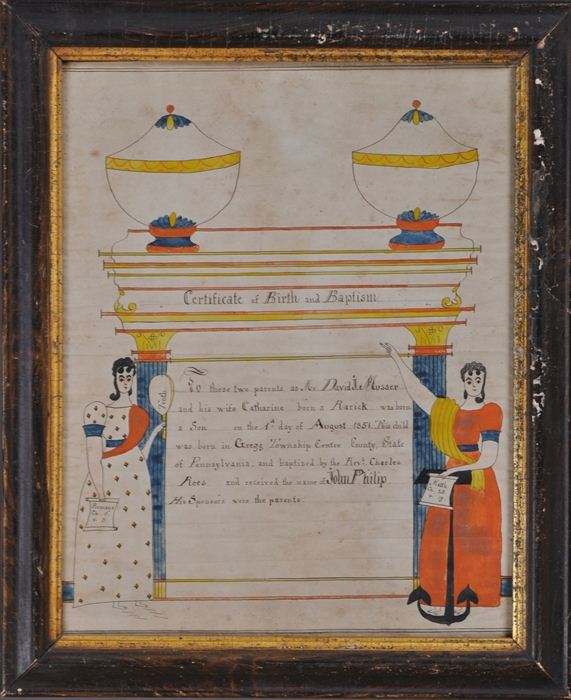 Certificate of Birth and Baptism
To these two parents, as Mr. David Musser
and his wife Catharine born a Rarick was born
a Son on the 1st day of August 1851. This child
was born in Gregg Township Centre County, State
of Pennsylvania, and baptized by the Revd. Charles
Rees and received the name of John Philip.
His Sponsors were the parents.
Truth
Romans
Ch. 6.
v. 3.
Math.
Ch. 28
v.